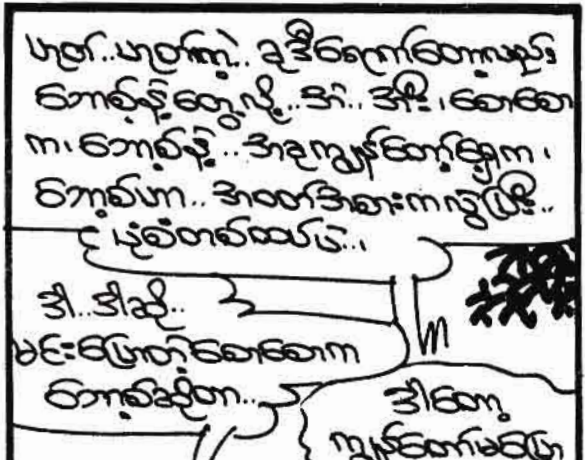 ဟုတ်..ဟုတ်ကဲ့.. ခုဒီရောက်တော့လည်း
ဘော့စ်နဲ့တွေ့လို့..အဲ.. အင်း၊ စောစော
က၊ ဘော့စ်နဲ့.. အခုကျွန်တော့်ရှေ့က၊
ဘော့စ်ဟာ.. အဝတ်အစားကလွဲပြီး..
ပုံစံတစ်ထပ်ပဲ..၊
ဒါ..ဒါဆို..
မင်းပြောတဲ့စောစောက
ဘော့စ်ဆိုတာ..
ဒါတော့
ကျွန်တော်မပြော